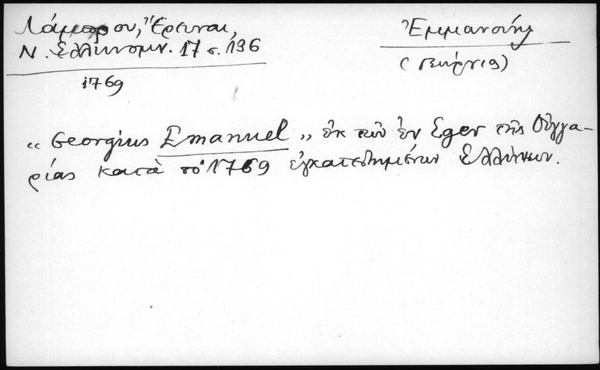 Λάμπρου, Ἔρευναι,
Ν. Ἑλληνομν. 17 σ. 136
1769
Ἐμμανουὴλ
(Γεώργιος)
« Georgius Emanuel » ἐκ τῶν ἐν Eger τῆς Οὑγγα-
ρίας κατὰ τὸ 1769 ἐγκατεστημένων Ἑλλήνων.